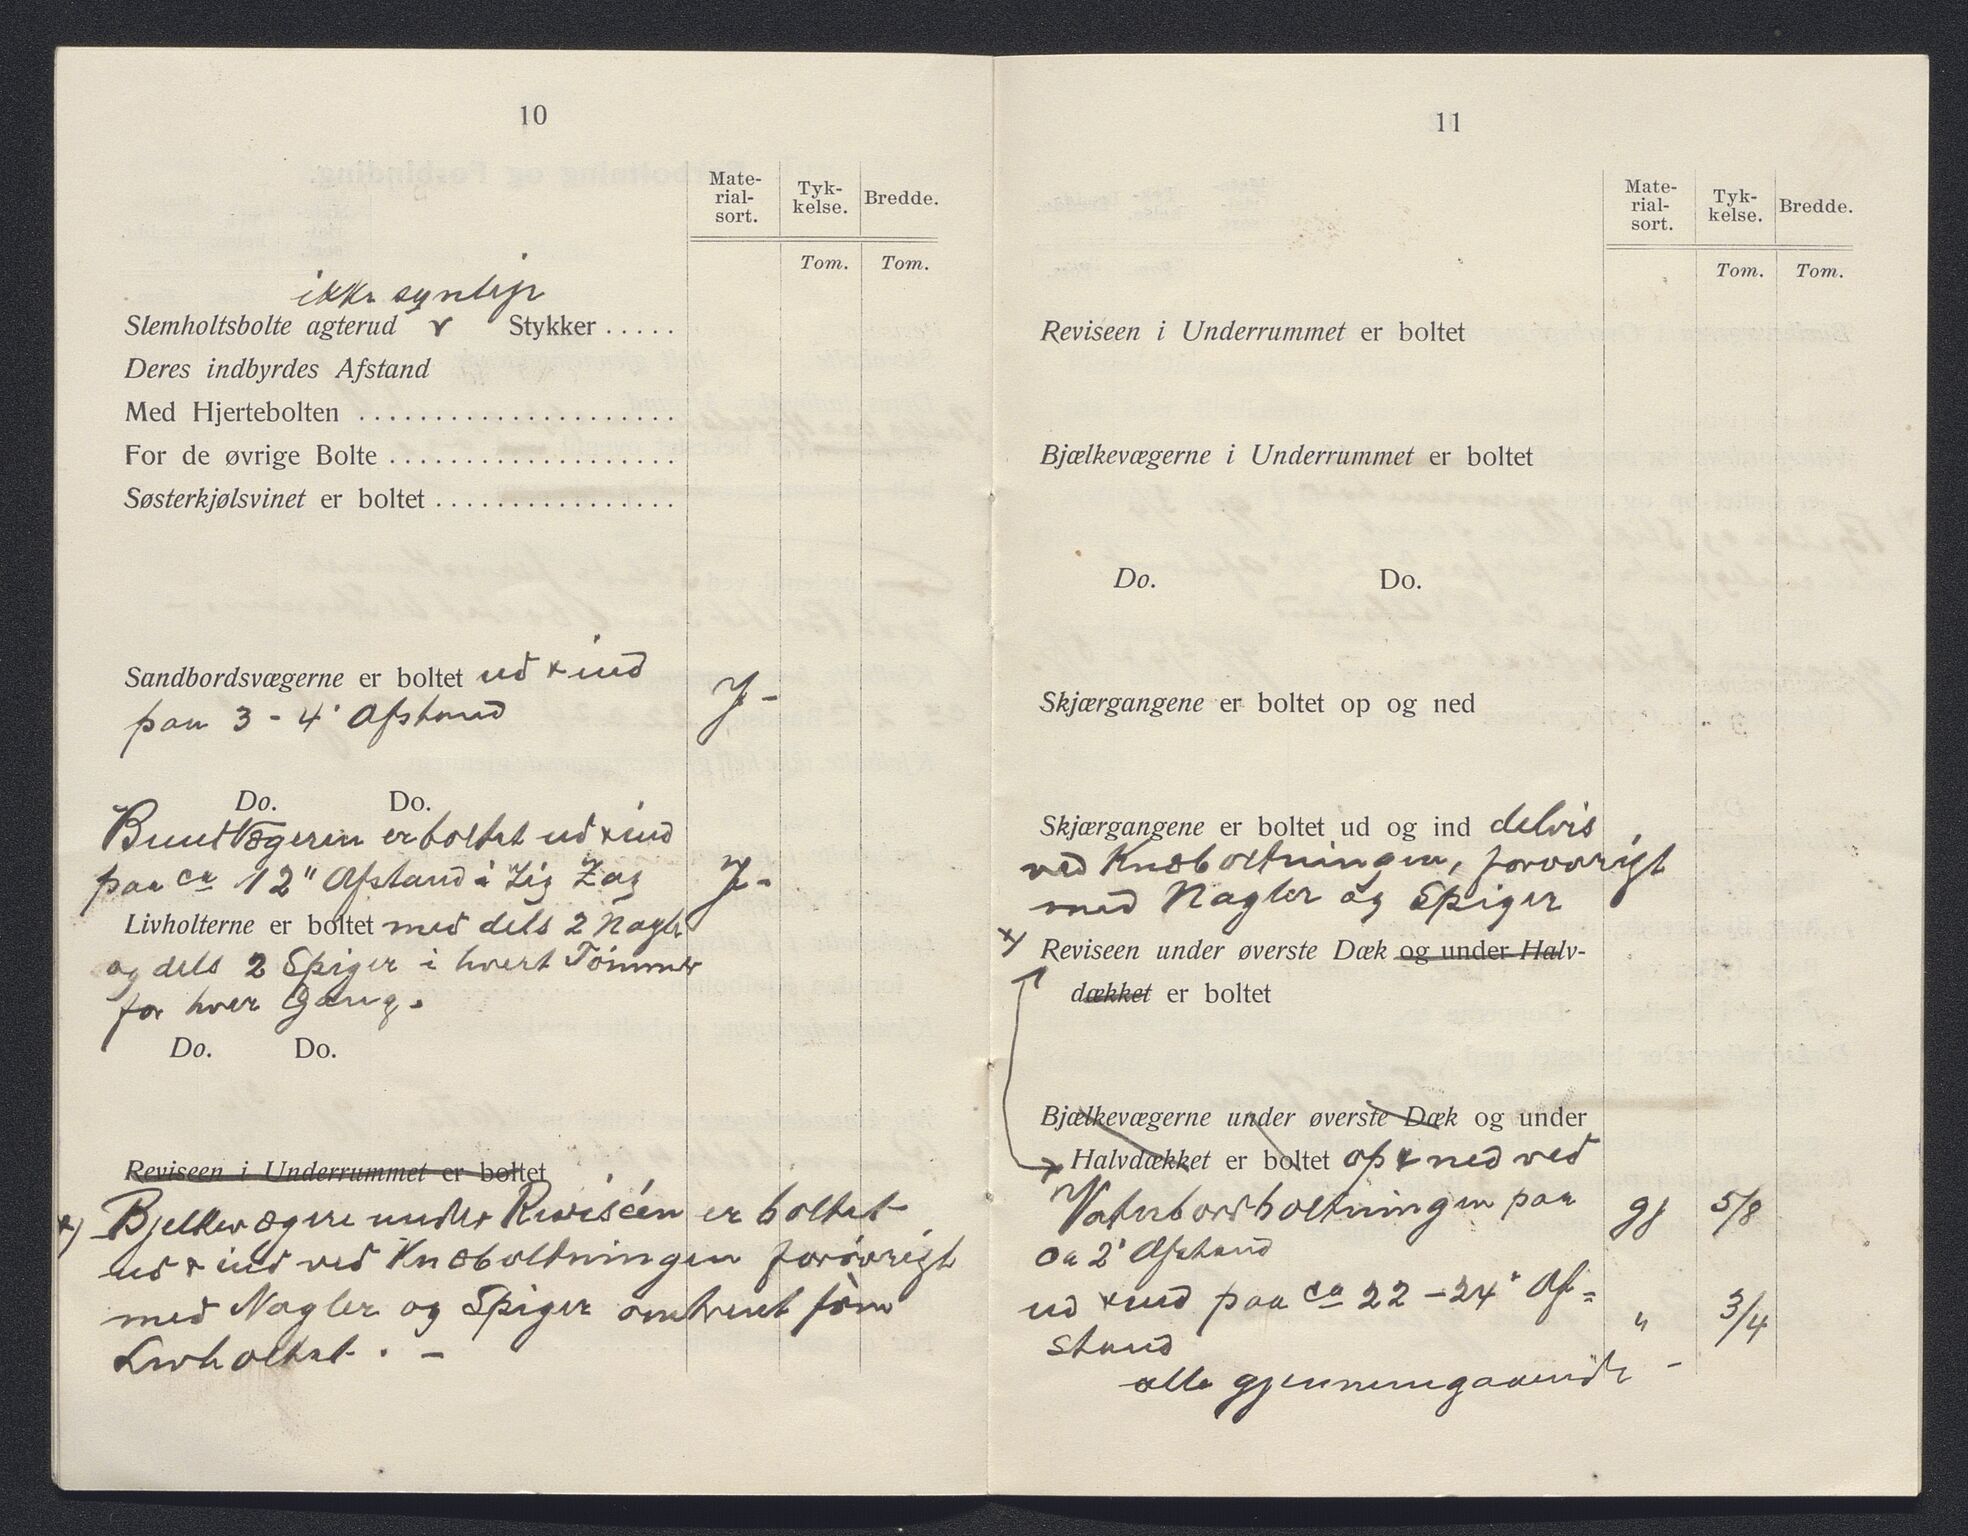 10
Mate-
rial-
sort.
Tyk-
kelse.
Bredde.
Tom.
Tom.
ikke synlige
Slemholtsbolte agterud v Stykker . . . . .
Deres indbyrdes Afstand
Med Hjertebolten . . . . . . . . . . . . . . . . . . . . .
For de øvrige Bolte . . . . . . . . . . . . . . . . . . .
Søsterkjølsvinet er boltet . . . . . . . . . . . . . . . .
Sandbordsvægerne er boltet ud & ind
paa 3 - 4' Afstand J -
Do. Do.
BundVægeren er boltet ud & ind
paa ca 12" Afstand i Zig Zag J -
Livholterne er boltet med dels 2 Nagler
og dels 2 Spiger i hvert Tömmer
for hver Gang.
Do. Do.
Reviseen i Underrummet er boltet
x) Bjelkevægere under Reviséen er boltet
ud & ind ved Knæboltningen forövrigt
med Nagler og Spiger omtrent som
Livholtet. -
11
Mate-
rial-
sort.
Tyk-
kelse.
Bredde.
Tom.
Tom.
Reviseen i Underrummet er boltet
Bjælkevægerne i Underrummet er boltet
Do. Do.
Skjærgangene er boltet op og ned
Skjærgangene er boltet ud og ind delvis
ved Knæboltningen, forøvrigt
med Nagler og Spiger
x) Reviseen under øverste Dæk og under Halv-
dækket er boltet
Bjælkevægerne under øverste Dæk og under
Halvdækket er boltet op & ned ved
Vaterbordboltningen paa gj 5/8
ca 2' Afstand
ud & ind paa ca 22 - 24" Af= " 3/4
stand
alle gjennemgaaende -